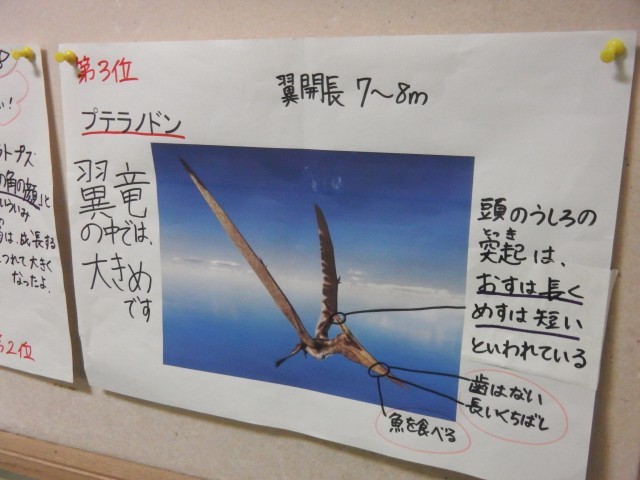 第3位
翼開長 7〜8m
プテラノドン
翼竜
の中では、
大きめ
です
頭のうしろの
とっき
突起は、
おすは長く
めすは短い
といわれている
歯はない
長いくちばし
魚を食べる
の角の顔」と
いういみ
は、成長する
つれて大きく
なったよ。
第2位